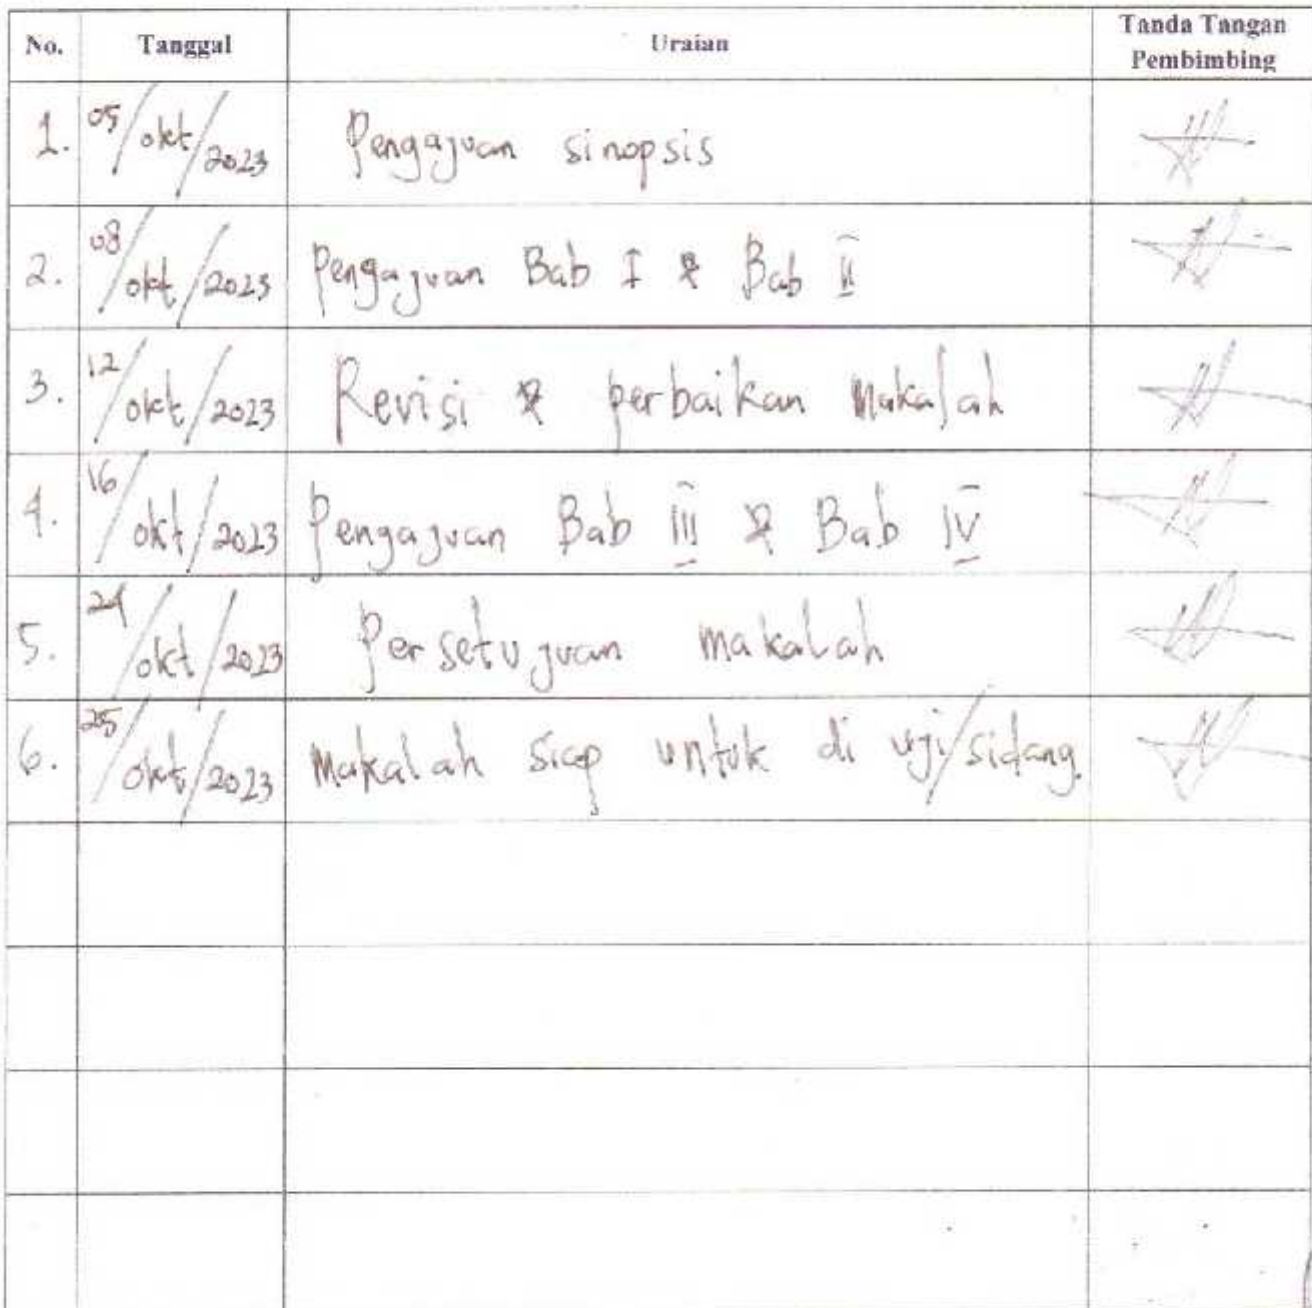 No. Tanggal Uraian Tanda Tangan Pembimbing
1. 05/okt/2023 Pengajuan sinopsis
2. 08/okt/2023 Pengajuan Bab I & Bab II
3. 12/okt/2023 Revisi & perbaikan Makalah
4. 16/okt/2023 Pengajuan Bab III & Bab IV
5. 24/okt/2023 Persetujuan makalah
6. 25/okt/2023 Makalah siap untuk di uji/sidang.